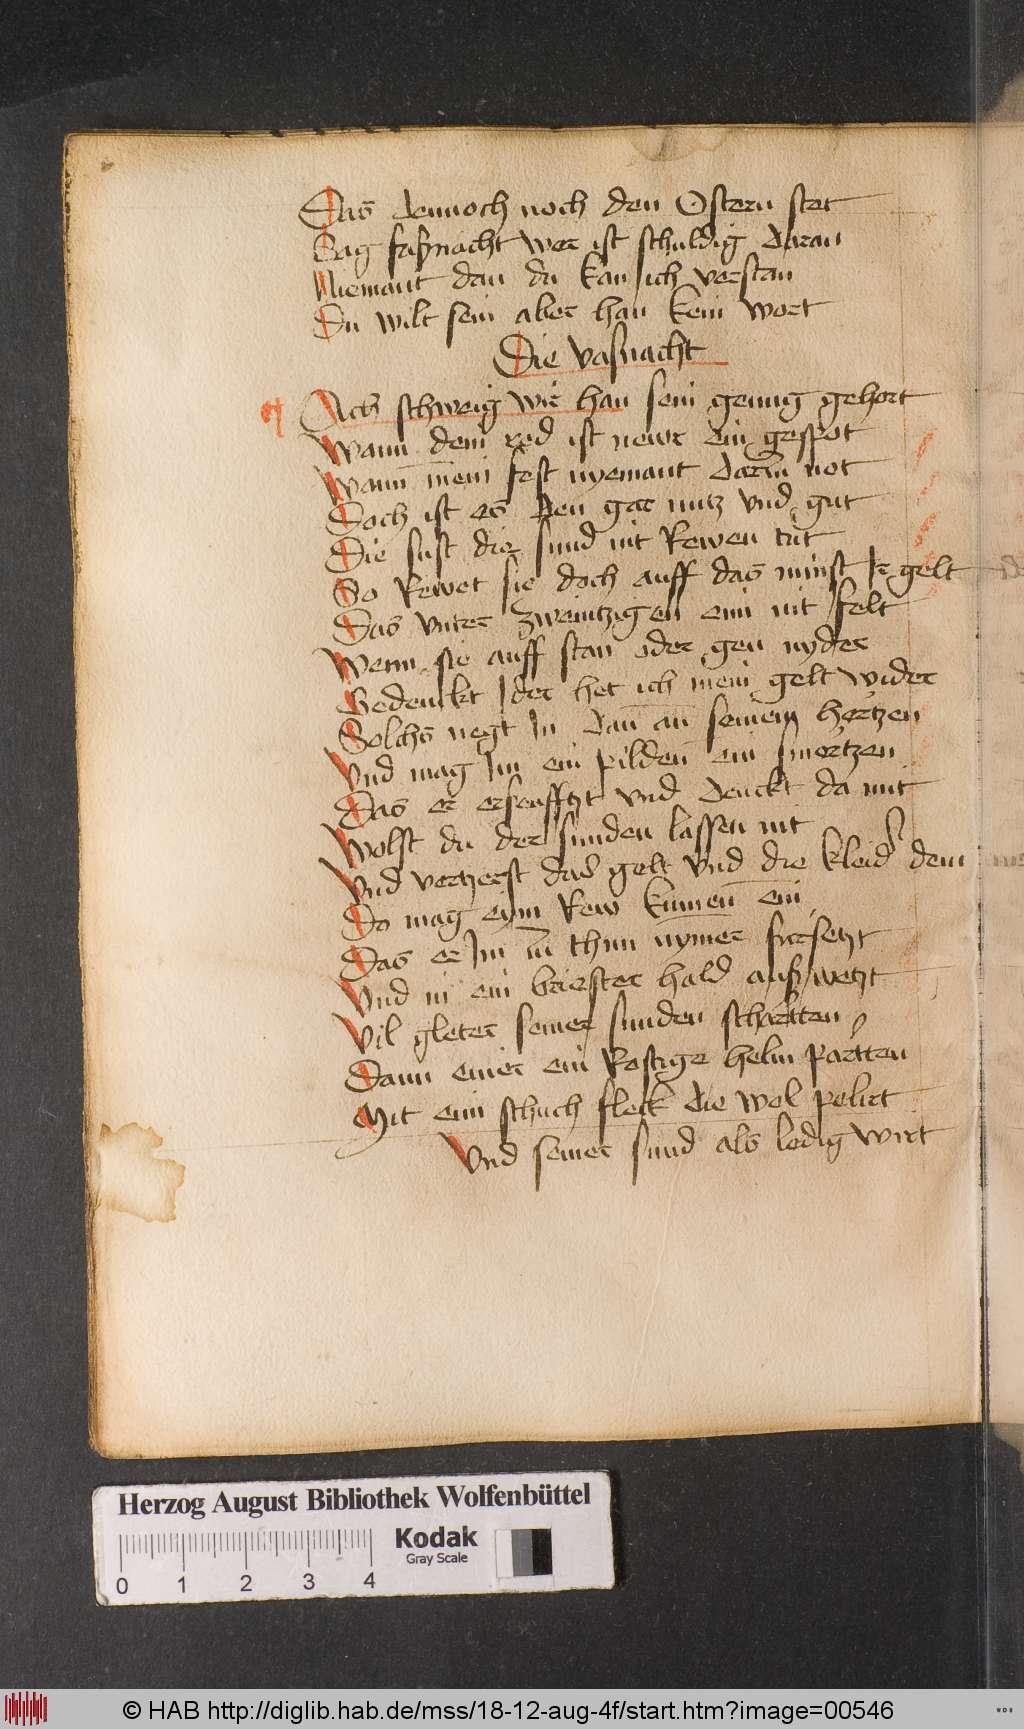 Das dennoch noch den Ostern stet
Sag faßnacht wer ist schuldig daran
Niemant dan du kan ich verstan
Du wilt sein aber han kein wort
Die vasnacht
Ach schweig wir han sein genug gehort
Wann dein red ist newr ein gespot
Wann mein fest nyemant darin not
Doch ist es den gar nutz vnd gut
Die sust die sund nit Rewen tut
So Rewet sie doch auff das minst Ir gelt
Das vnter zweintzigen eim nit felt
Wenn sie auff stan oder gen nyder
Gedenckt der het ich mein gelt wider
Solchs negt In dan an seinem hertzen
Vnd mag Im ein pilden ein smertzen
Das er erseufftzt vnd denckt da mit
Wolst du der sunden lassen nit
Vnd verzerst das gelt vnd die kleider dein
Do mag eym Rew kumen ein
Das er Im zu thun nymer fursetzt
Vnd in ein briester hald auß wetzt
Vil gleter seiner sunden scharten
Dann einer ein Rostige helm parten
Mit eim schuch fleck die wol polirt
Vnd seiner sund als ledig wirt
Herzog August Bibliothek Wolfenbüttel
Kodak
Gray Scale
0 1 2 3 4
© HAB http://diglib.hab.de/mss/18-12-aug-4f/start.htm?image=00546